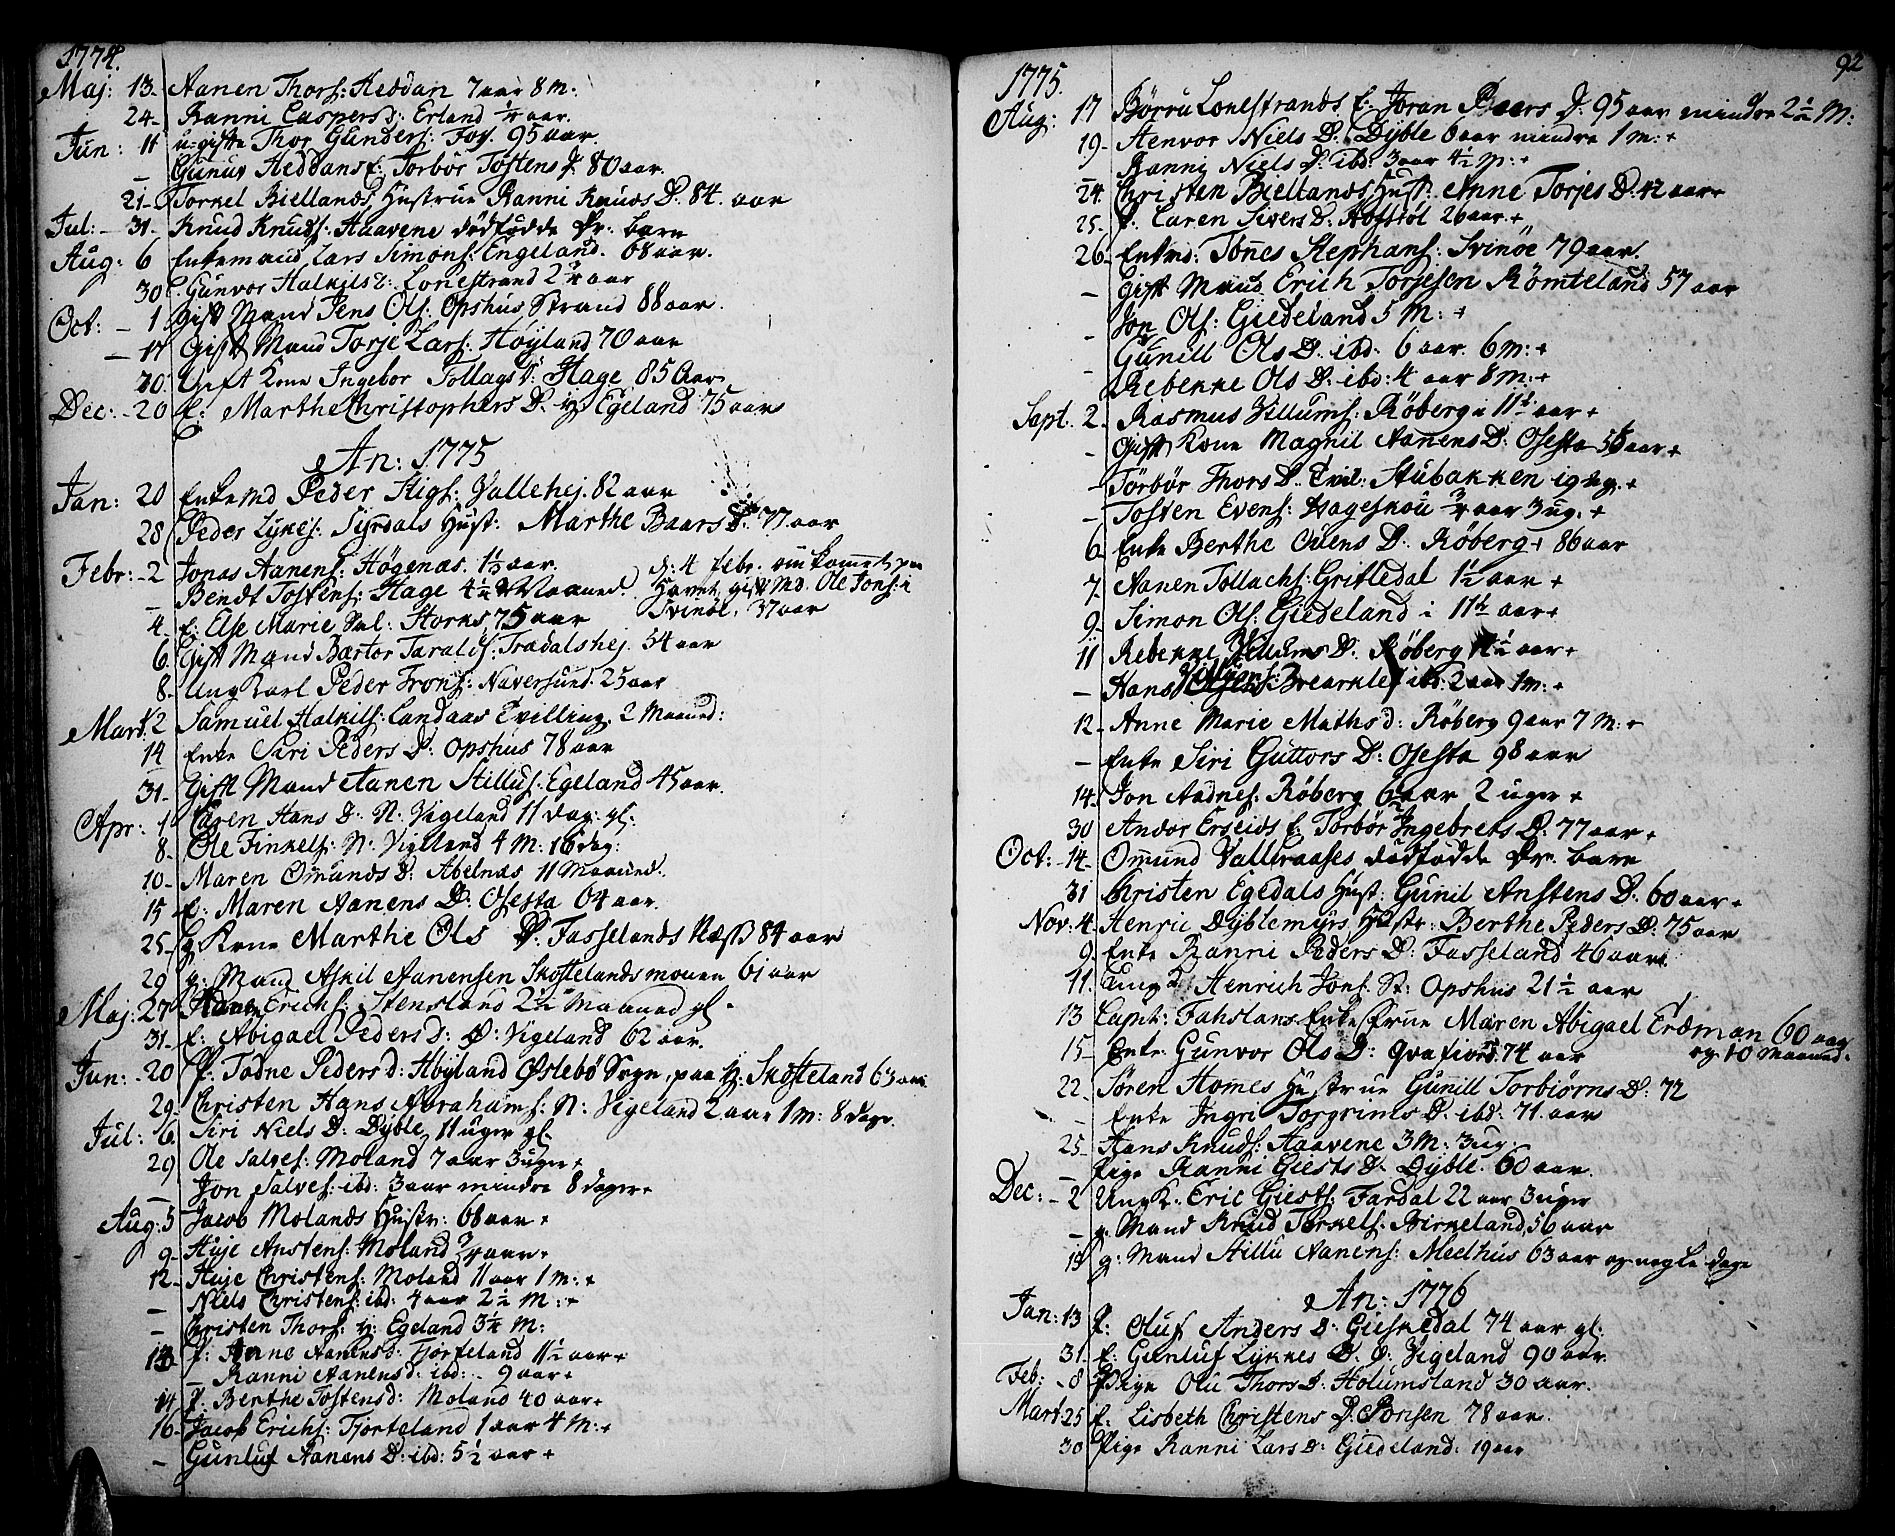 1774.
Maj: 13- Aanen Thors: Heddan 7 aar 8 m:
24- Ranni Caspersd: Erland 1/4 aar.
Jun: 11 u-gifte Thor Gunders: Foss. 95 aar.
- Gunus Heddans E: Torbor Tostens D. 80 aar.
21- Torkel Biellands Hustrue Ranni Knuds D. 84. aar
Jul: - 31- Knud Knuds: Haavene dødfødde Dr: barn
Aug: 6 Enkemand Lars Simons: Engeland. 68 aar.
30 Gunvor Halkilsd: Lonestrand 2 3/4 aar
Oct: - 1 Gift Mand Jens Ols: Opshus Strand 88 aar.
- 17 Gift Mand Torje Lars: Høyland 70 aar
20. Gift Kone Ingebor Tollags D: Hage 85 Aar
Dec: - 20 E: Marthe Christophers D. N. Egeland 75 aar
An: 1775
Jan: 20 Enkemd Peder Stigs: Vallehej. 82 aar
28 Peder Lykes: Syrdals Hust: Marthe Baars D. 77 aar
Febr: - 2 Jonas Aanens: Høgenas. 1 1/2 aar.
- Bendt Tostens: Hage 4 1/2 Maaned.
d: 4 febr. omkommet paa
Havet gift Md. Ole Jons: i
Svinøl, 37 aar
4- E: Else Marie Sal: Storks 75 aar
6. Gift Mand Bærtor Taralds: Tradalshej. 54 aar
8- Ung Karl Peder Trons: Naversund. 25 aar
Mart. 12 Samuel Halkils: Landaas Tvilling. 2 Maaned:
14 Enke Siri Peders D: Opshus 78 aar
31- Gift Mand Aanen Stillus: Egeland 45 aar.
Apr: 1 Caren Hans D: N: Vigeland 11 dag: gl:
8- Ole Finkels: N: Vigeland 4 M: 16 dag:
10- Maren Omunds D: Abelnæs 11 Maaned.
15 E: Maren Aanens D: Osesta 64 aar.
25- g Kone Marthe Ols D. Fasselands Næss 84 aar
29 g: Mand Askil Aanensen Skottelandsmonen 61 aar
Maj: 27 Adne Erichs: Stensland 2 1/2 Maaned gl.
31- E: Abigael Peders d: O: Vigeland 62 aar.
Jun: - 20 P. Todne Peders d: Høyland Øslebø Sogn, paa N: Skotteland 63 aar
29- Christen Hans Abrahams: N: Vigeland 2 aar 1 m: 8 dage.
Jul: 6 Siri Niels D: Dyble 11 uger gl.
29 Ole Salves: Moland 7 aar 3 uger +
- Jon Salves: ibd: 3 aar mindre 8 dager +
Aug: 5 Jacob Molands Hustr: 68 aar +
9- Huje Anstens: Moland 3/4 aar +
12- Huje Christens: Moland 11 aar 1 m: +
- Niels Christens: ibd: 4 aar 2 1/2 M: +
- Christen Thors: N: Egeland 3 1/2 M:
14 P: Anne Aanensd: Fjorteland 11 1/2 aar +
- Ranni Aanensd: ibd: - 9 aar +
14 P. Berthe Tostensd: Moland 40 aar +
16- Jacob Erichs: Fjorteland 1 aar 4 M: +
- Gunluf Aanens D: ibd: 5 1/2 aar +
92
1775.
Aug: 17 Børru Lonestrands E: Joran Baars D: 95 aar mindre 2 1/2 M:
19- Aenvor Niels D: Dyble 6 aar mindre 1 m: +
- Ranni Niels D: ibd: 3 aar 4 1/2 M: +
24. Christen Biellands Hust: Anne Torjes D: 42 aar +
25- P. Caren Sivers D: Hofstøl 26 aar +
26- Enkemd: Tønes Stephans: Svinøe 79 aar.
- Gift Mand Erich Torjesen Rømteland 57 aar
- Jon Ols: Giedeland 5 M: +
- Gunill Ols D. ibd: 6 aar. 6 m: +
- Rebekke Ols D: ibd: 4 aar 8 m: +
Sept. 2. Rasmus Villums: Røberg i 11 1/2 aar +
- Gift Kone Magnil Aanens D: Osesta 56 aar +
- Torbør Thors D. Tvil: Stubakken 19 ug. +
- Tosten Evens: Hageskou 3/4 aar 3 ug. +
6. Enke Berthe Odens D: Røberg + 86 aar
7. Aanen Tollachs: Gritledal 1 1/2 aar +
9. Simon Ols: Giedeland i 11 1/2 aar +
11 Rebekke Villums D: Røberg 1 1/2 aar +
- Hans Brearkles ibd: 2 aar 1 m: +
12- Anne Marie Mathsd: Røberg 9 aar 7 M: +
- Enke Siri Guttors D: Osesta 98 aar
14- Jon Aadnes: Røberg 6 aar 2 uger +
30 Andor Erseids E: Torbør Ingebrets D: 77 aar +
Oct: - 14- Omund Valleraases dødfødde Dr. barn
31 Christen Egedals Hust: Gunil Anstens D: 60 aar +
Nov: 4. Henric Dyblemyrs Hustr: Berthe Peders D: 75 aar
9- Enke Ranni Peders D: Fasseland 46 aar
11. Ungd: Henrich Jons: St: Opshus 21 1/2 aar
13 Capit: Fahslans Enke Frue Maren Abigael Erdman 60 aar
og 10 Maaned.
15- Enke Gunvor Ols D: Qvafiord 74 aar
22 Søren Homes Hustrue Gunill Torbiørns D: 72
- Enke Ingri Torgrims D. ibd: 71. aar
25- Hans Knuds: Haavene 3 M: 3 ug:
- Pige Ranni Giests D: Dyble. 60 aar.
Dec: - 2 Ung K. Eric Giests: Fardal 22 aar 3 uger
- g. Mand Knud Torkels: Birkeland 56 aar
19 g: Mand Stillu Aanens: Meelhus 63 aar og nogle dage
An: 1776
Jan: 13 P: Oluf Anders D: Gieskedal 74 aar gl.
31. E: Gunluf Lykkes D. O: Vigeland 90 aar
Feb: - 8 Pige Olu Thors D: Holumsland 30 aar.
Mart. 25 E. Lisbeth Christens D: Ponsen 78 aar.
30 Pige Ranni Lars D: Giedeland: 19 aar